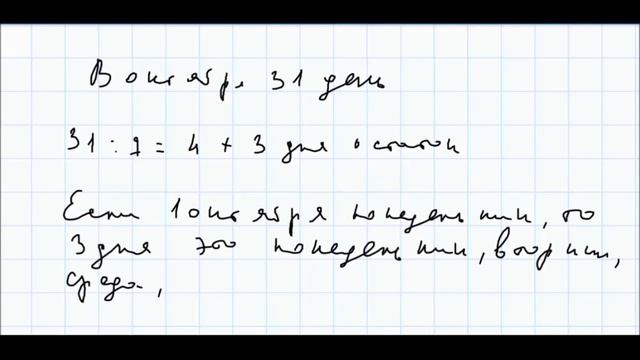 В октября 31 день
31 : 7 = 4 + 3 дня остаток
Если 1 октября понедельник, то
3 дня это понедельник, вторник,
среда,